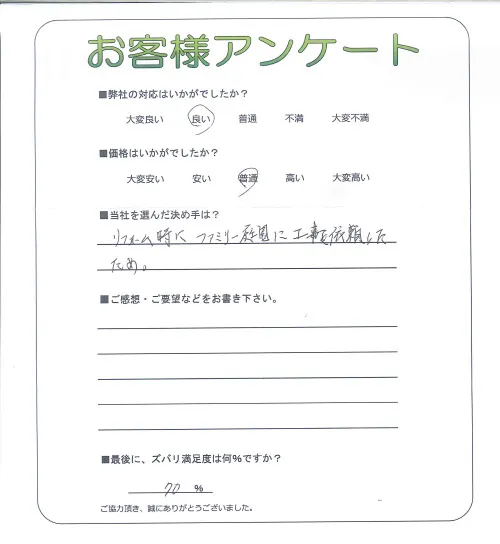 お客様アンケート
■弊社の対応はいかがでしたか？
大変良い 良い 普通 不満 大変不満
■価格はいかがでしたか？
大変安い 安い 普通 高い 大変高い
■当社を選んだ決め手は？
リフォーム時に ファミリー庭園に工事を依頼した
ため。
■ご感想・ご要望などをお書き下さい。
■最後に、ズバリ満足度は何%ですか？
70 %
ご協力頂き、誠にありがとうございました。